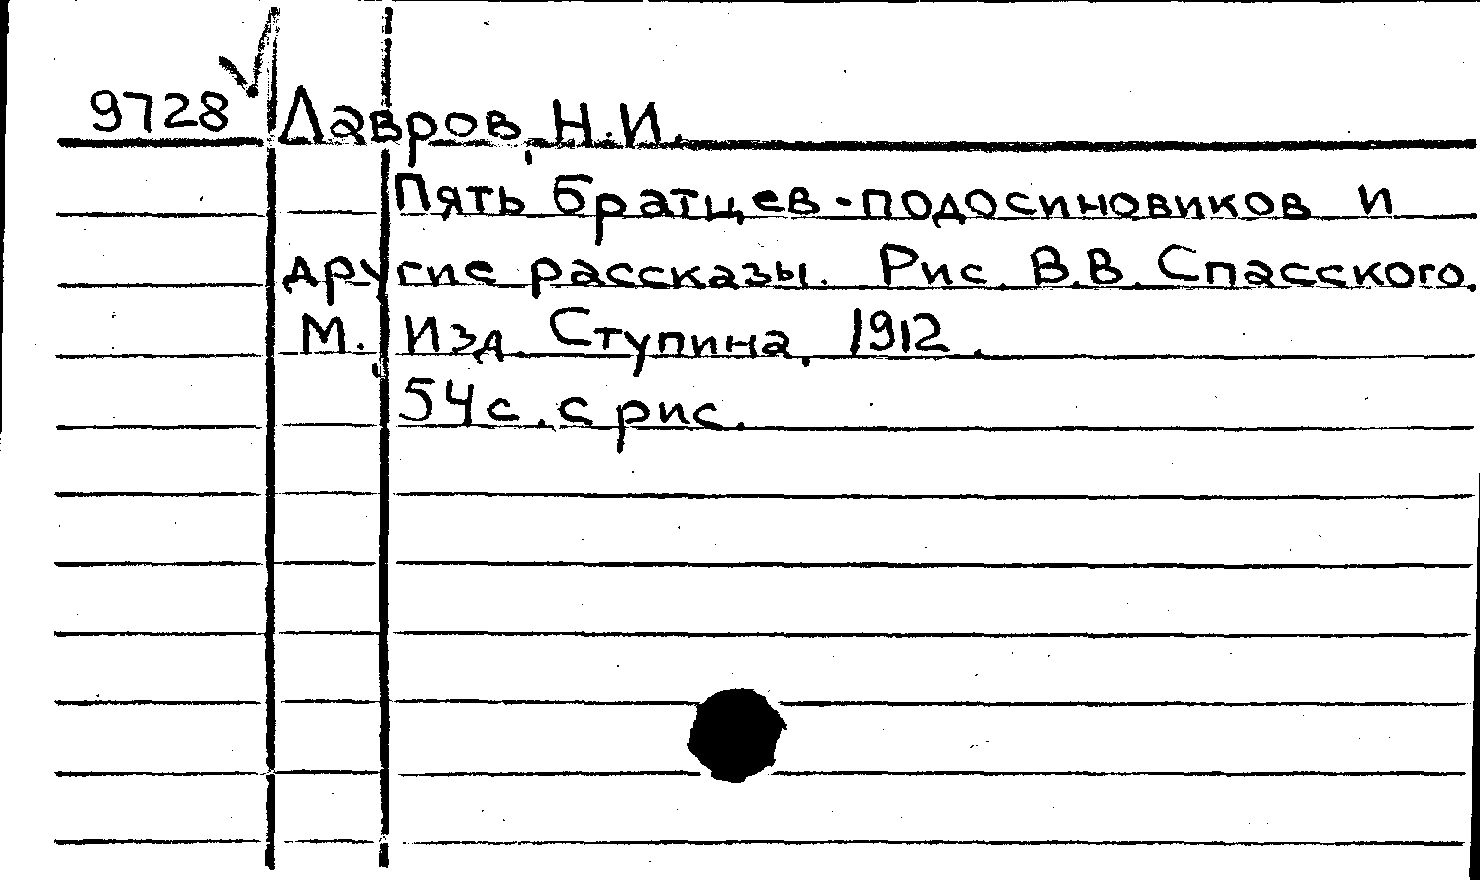 9728 Лавров, Н.И.
Пять братцев-подосиновиков и
другие рассказы. Рис. В.В. Спасского.
М., Изд. Ступина, 1912.
54с. с рис.